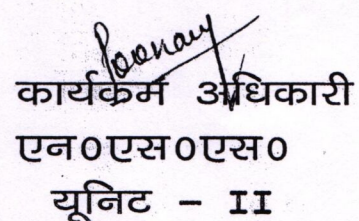 Poonam
कार्यक्रम अधिकारी
एन०एस०एस०
यूनिट - II